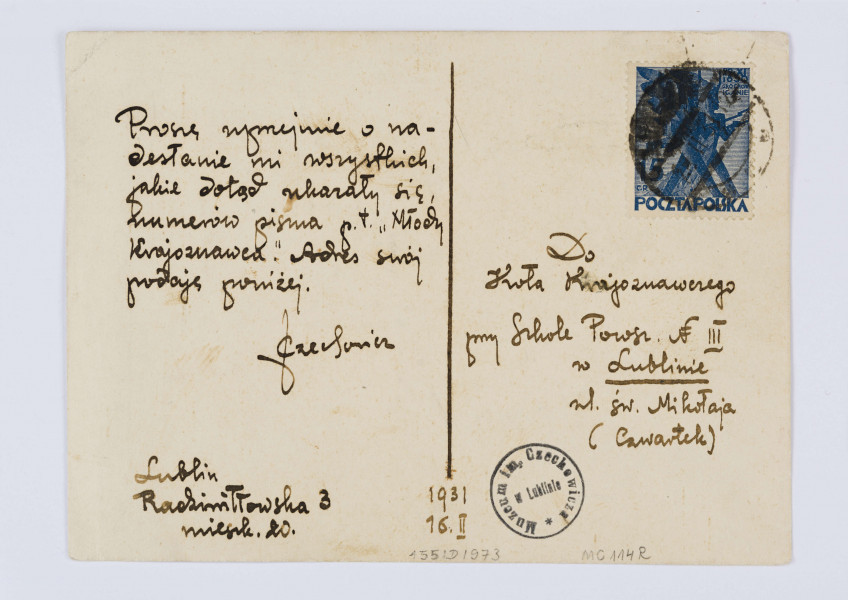 Proszę uprzejmie o na-
desłanie mi wszystkich,
jakie dotąd ukazały się,
numerów pisma p.t. „Młody
Krajoznawca." Adres swój
podaję poniżej.
JCzechowicz
Lublin
Radziwiłłowska 3
mieszk. 20.
1931
16.II
POCZTA POLSKA
Do
Koła Krajoznawczego
przy Szkole Powsz. № III
w Lublinie
ul. św. Mikołaja
(Czwartek)
Muzeum im. Czechowicza
w Lublinie
MC 114 R